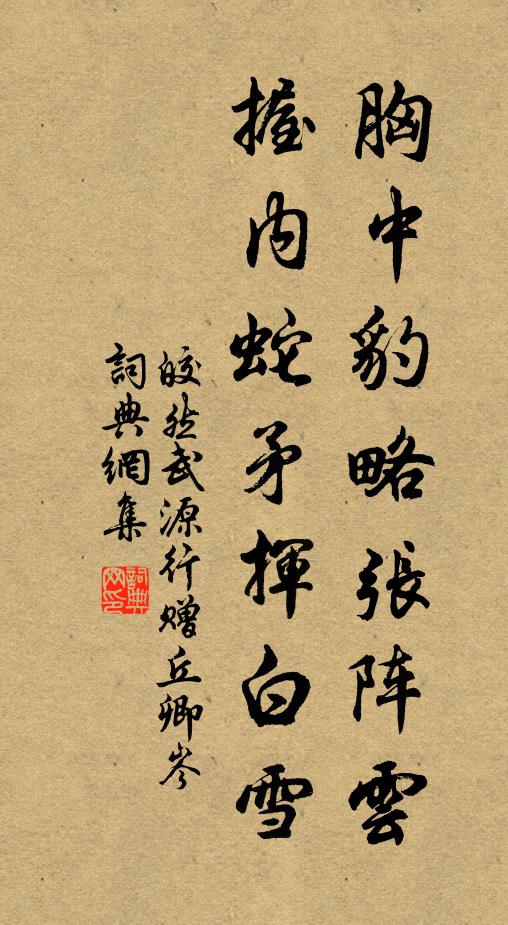 胸中豹略張阵雲
握内蛇矛揮白雪
皎然武源行赠丘卿岑
詞典網集
詞典网印